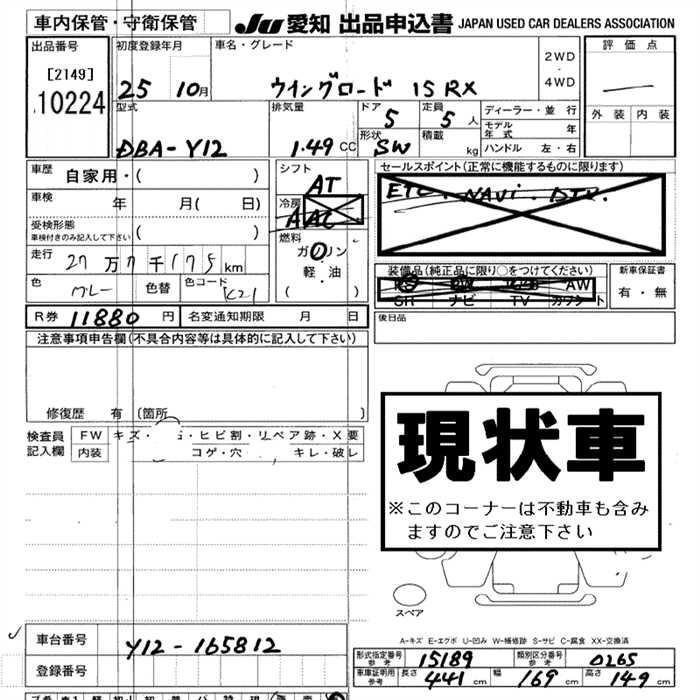 車内保管・守衛保管 JU 愛知 出品申込書 JAPAN USED CAR DEALERS ASSOCIATION
出品番号 初度登録年月 車名・グレード 2WD ・ 4WD 評価点
[2149] 10224 25 10月 ウイングロード 15RX
型式 排気量 ドア 5 定員 5人 ディーラー・並行 外装 内装
モデル年式 年
DBA-Y12 1.49 CC 形状 SW 積載 kg ハンドル 左・右
車歴 自家用・( ) シフト AT セールスポイント(正常に機能するものに限ります)
車検 年 月( 日) 冷房 AAC ETC.NAVi.DTR.
受検形態 車検付きのみ記入して下さい ( ) 燃料 ガソリン 軽・油 ( )
走行 27万7千175km 装備品(純正品に限り○をつけてください) 新車保証書
色 グレー 色替 色コード K21 AW 有・無
ナビ TV
R券 11880円 名変通知期限 月 日 後日品
注意事項申告欄(不具合内容等は具体的に記入して下さい)
修復歴 有 〔箇所 〕
検査員記入欄 FW キズ・ ・ヒビ割・リペア跡・X要
内装 コゲ・穴 キレ・破レ
現状車
※このコーナーは不動車も含み
ますのでご注意下さい
スペア
A-キズ E-エクボ U-凹み W-補修跡 S-サビ C-腐食 XX-交換済
車台番号 Y12-165812 形式指定番号 参考 15189 類別区分番号 参考 0265
登録番号 車庫証明用 参考 長さ 441 cm 幅 169 cm 高さ 149 cm